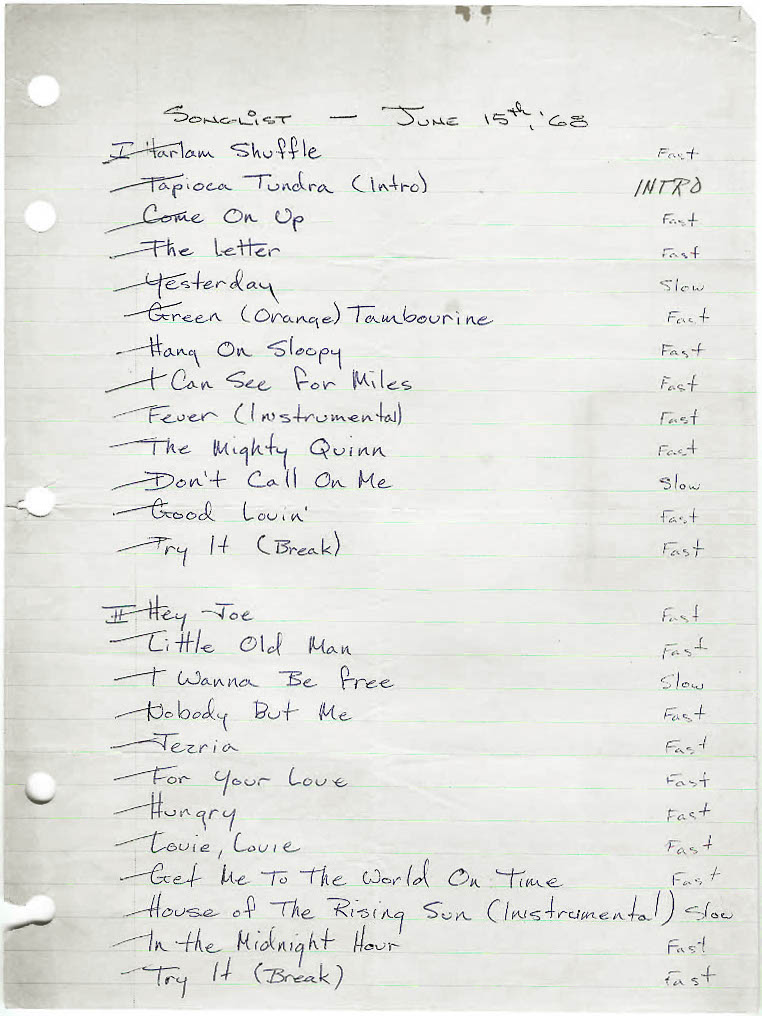 SONGLIST — JUNE 15th, '68
I Harlam Shuffle Fast
Tapioca Tundra (Intro) INTRO
Come On Up Fast
The Letter Fast
Yesterday Slow
Green (Orange) Tambourine Fast
Hang On Sloopy Fast
I Can See For Miles Fast
Fever (Instrumental) Fast
The Mighty Quinn Fast
Don't Call On Me Slow
Good Lovin' Fast
Try It (Break) Fast
II Hey Joe Fast
Little Old Man Fast
I Wanna Be Free Slow
Nobody But Me Fast
Fast
For Your Love Fast
Hungry Fast
Louie, Louie Fast
Get Me To The World On Time Fast
House of The Rising Sun (Instrumental) Slow
In the Midnight Hour Fast
Try It (Break) Fast